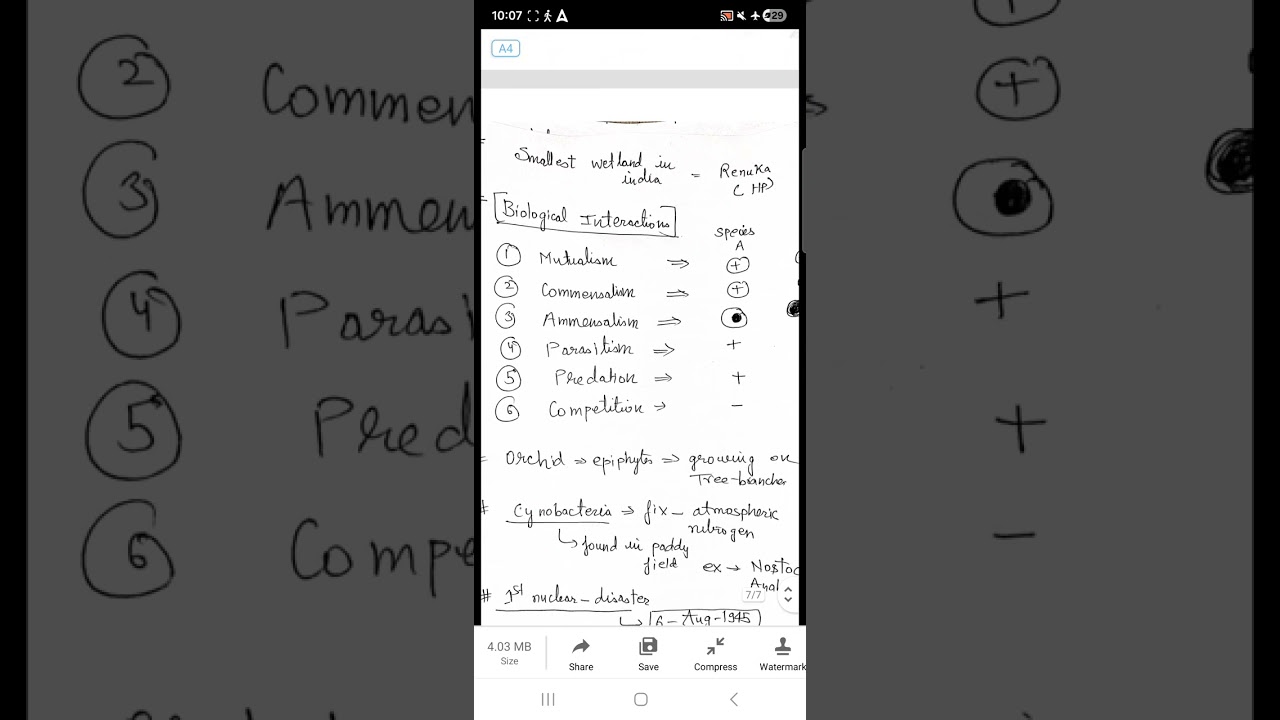 10:07
29
A4
Smallest wetland in india = Renuka (HP)
Biological Interactions
Species A
① Mutualism ⇒ +
② Commensalism ⇒ +
③ Ammensalism ⇒
④ Parasitism ⇒ +
⑤ Predation ⇒ +
⑥ Competition → -
= Orchid ⇒ epiphytes ⇒ growing on Tree-branches
# Cynobacteria → fix - atmospheric nitrogen
↳ found in paddy field
ex → Nostoc
Anal
# 1st nuclear - disaster
↳ 6 - Aug - 1945
7/7
4.03 MB
Size
Share
Save
Compress
Watermark
② Commen
+
③ Ammen
④ Parasi
+
⑤ Pred
+
⑥ Compe
-